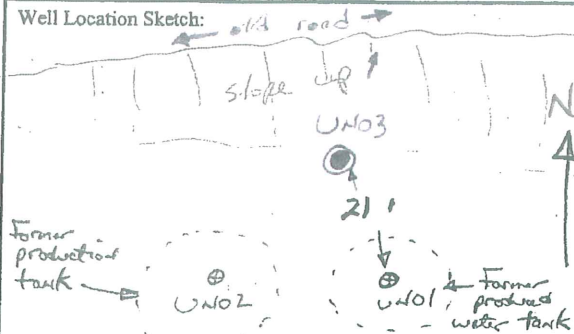 Well Location Sketch:
old road
slope up
N
UNO3
21'
Former
production
tank
UNO2
UNO1
Former
produced
water tank